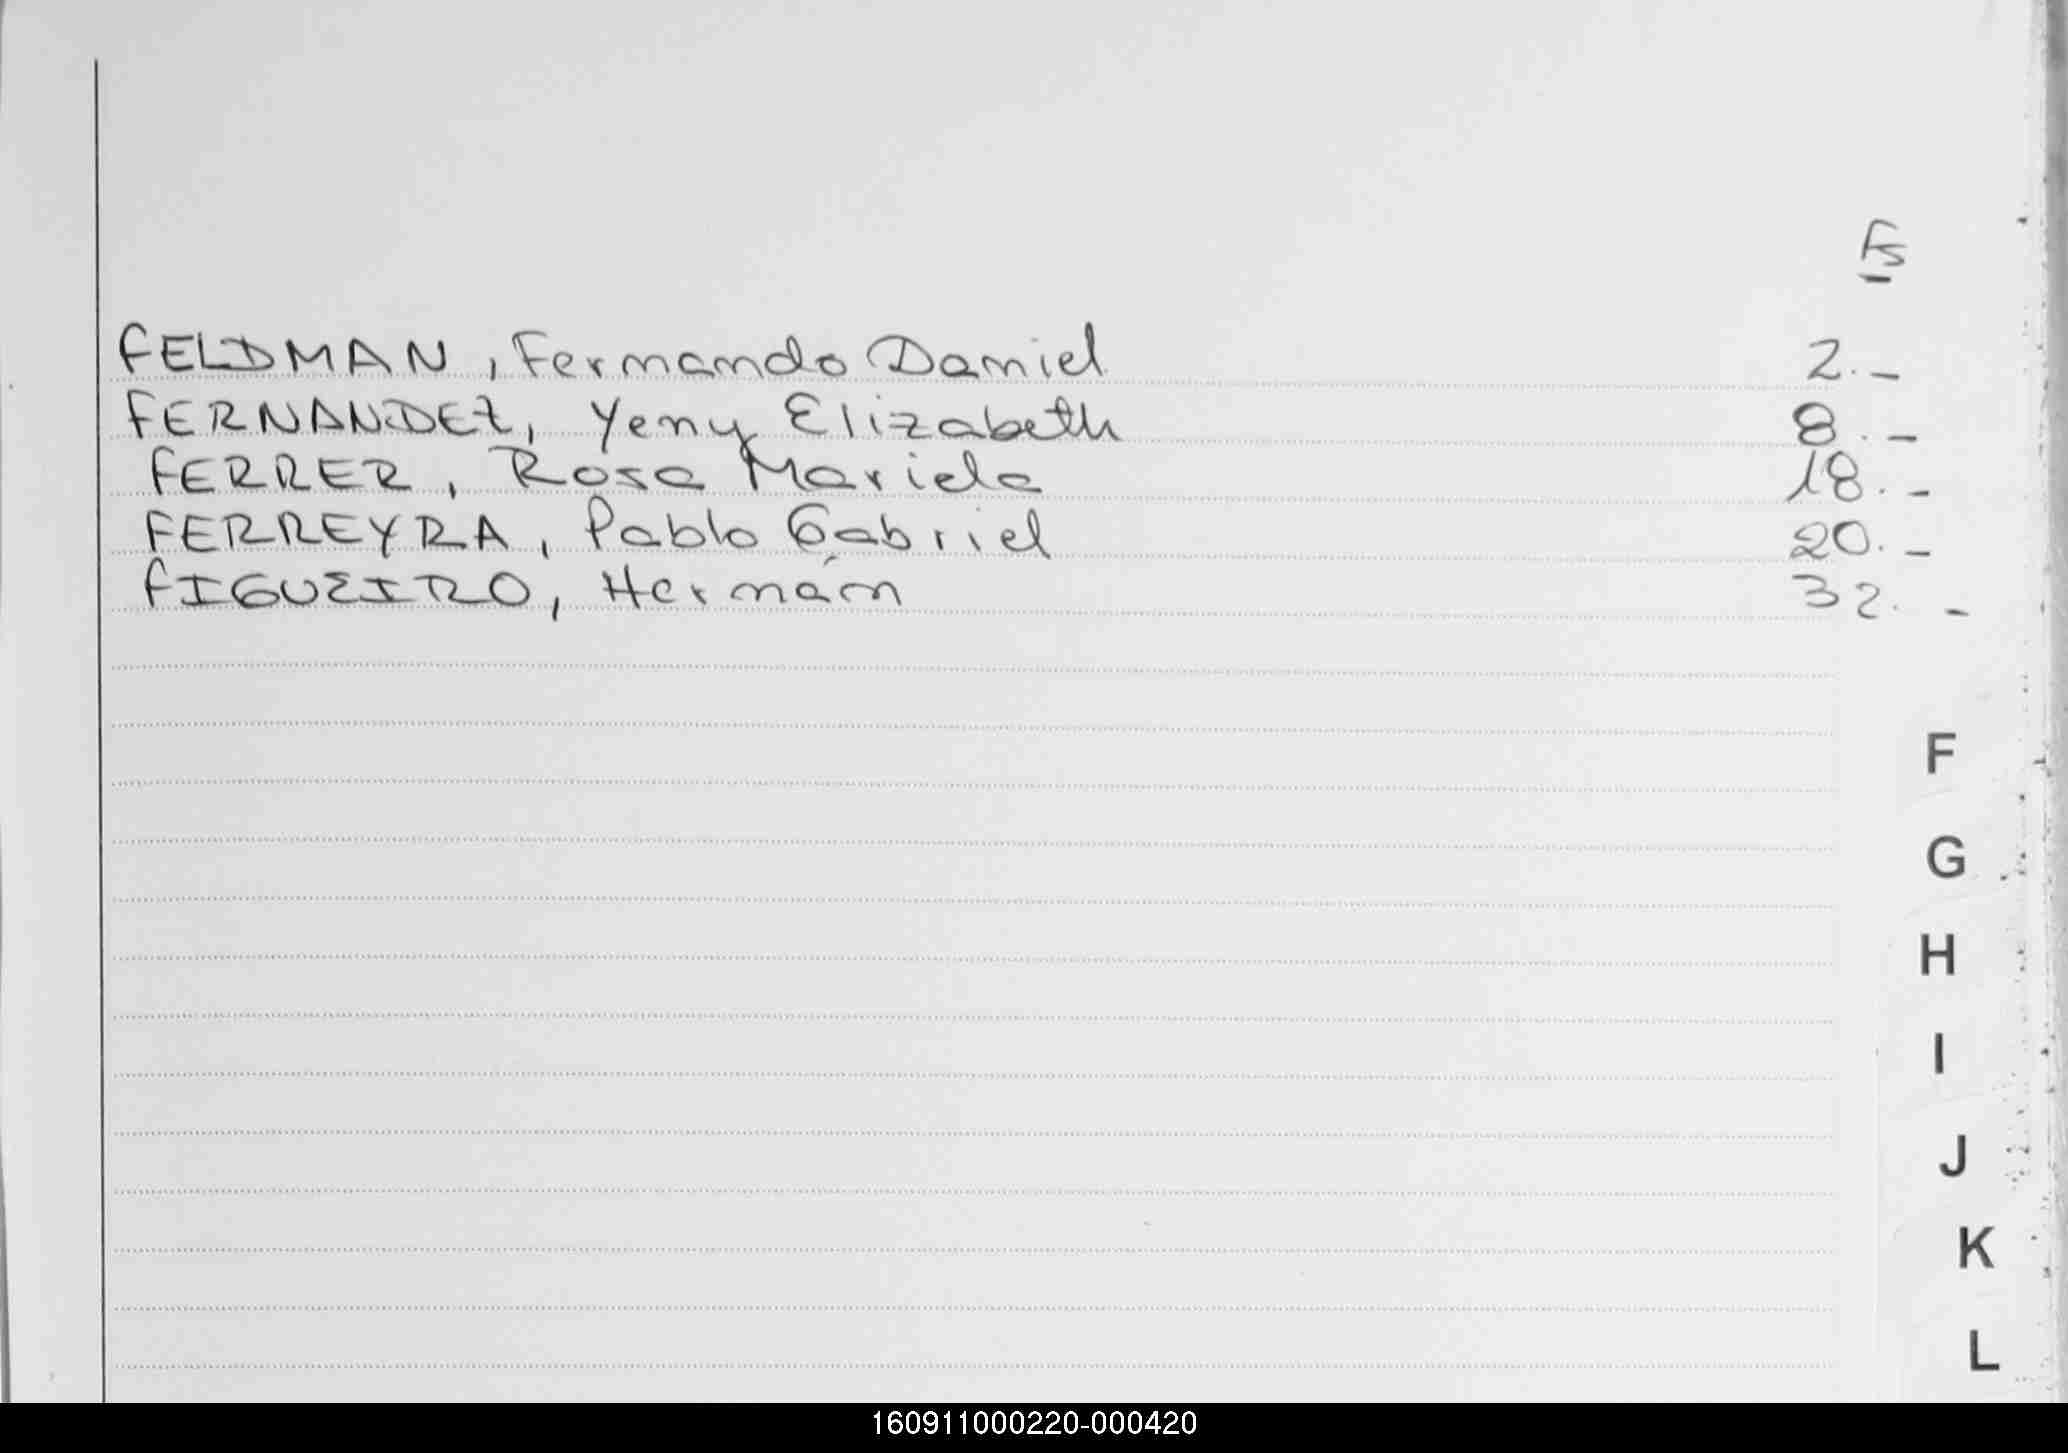 Fs
FELDMAN, Fernando Daniel 2.-
FERNANDEZ, Yeny Elizabeth 8.-
FERRER, Rosa Mariela 18.-
FERREYRA, Pablo Gabriel 20.-
FIGUEIRO, Hernán 32.-
F
G
H
I
J
K
L
160911000220-000420